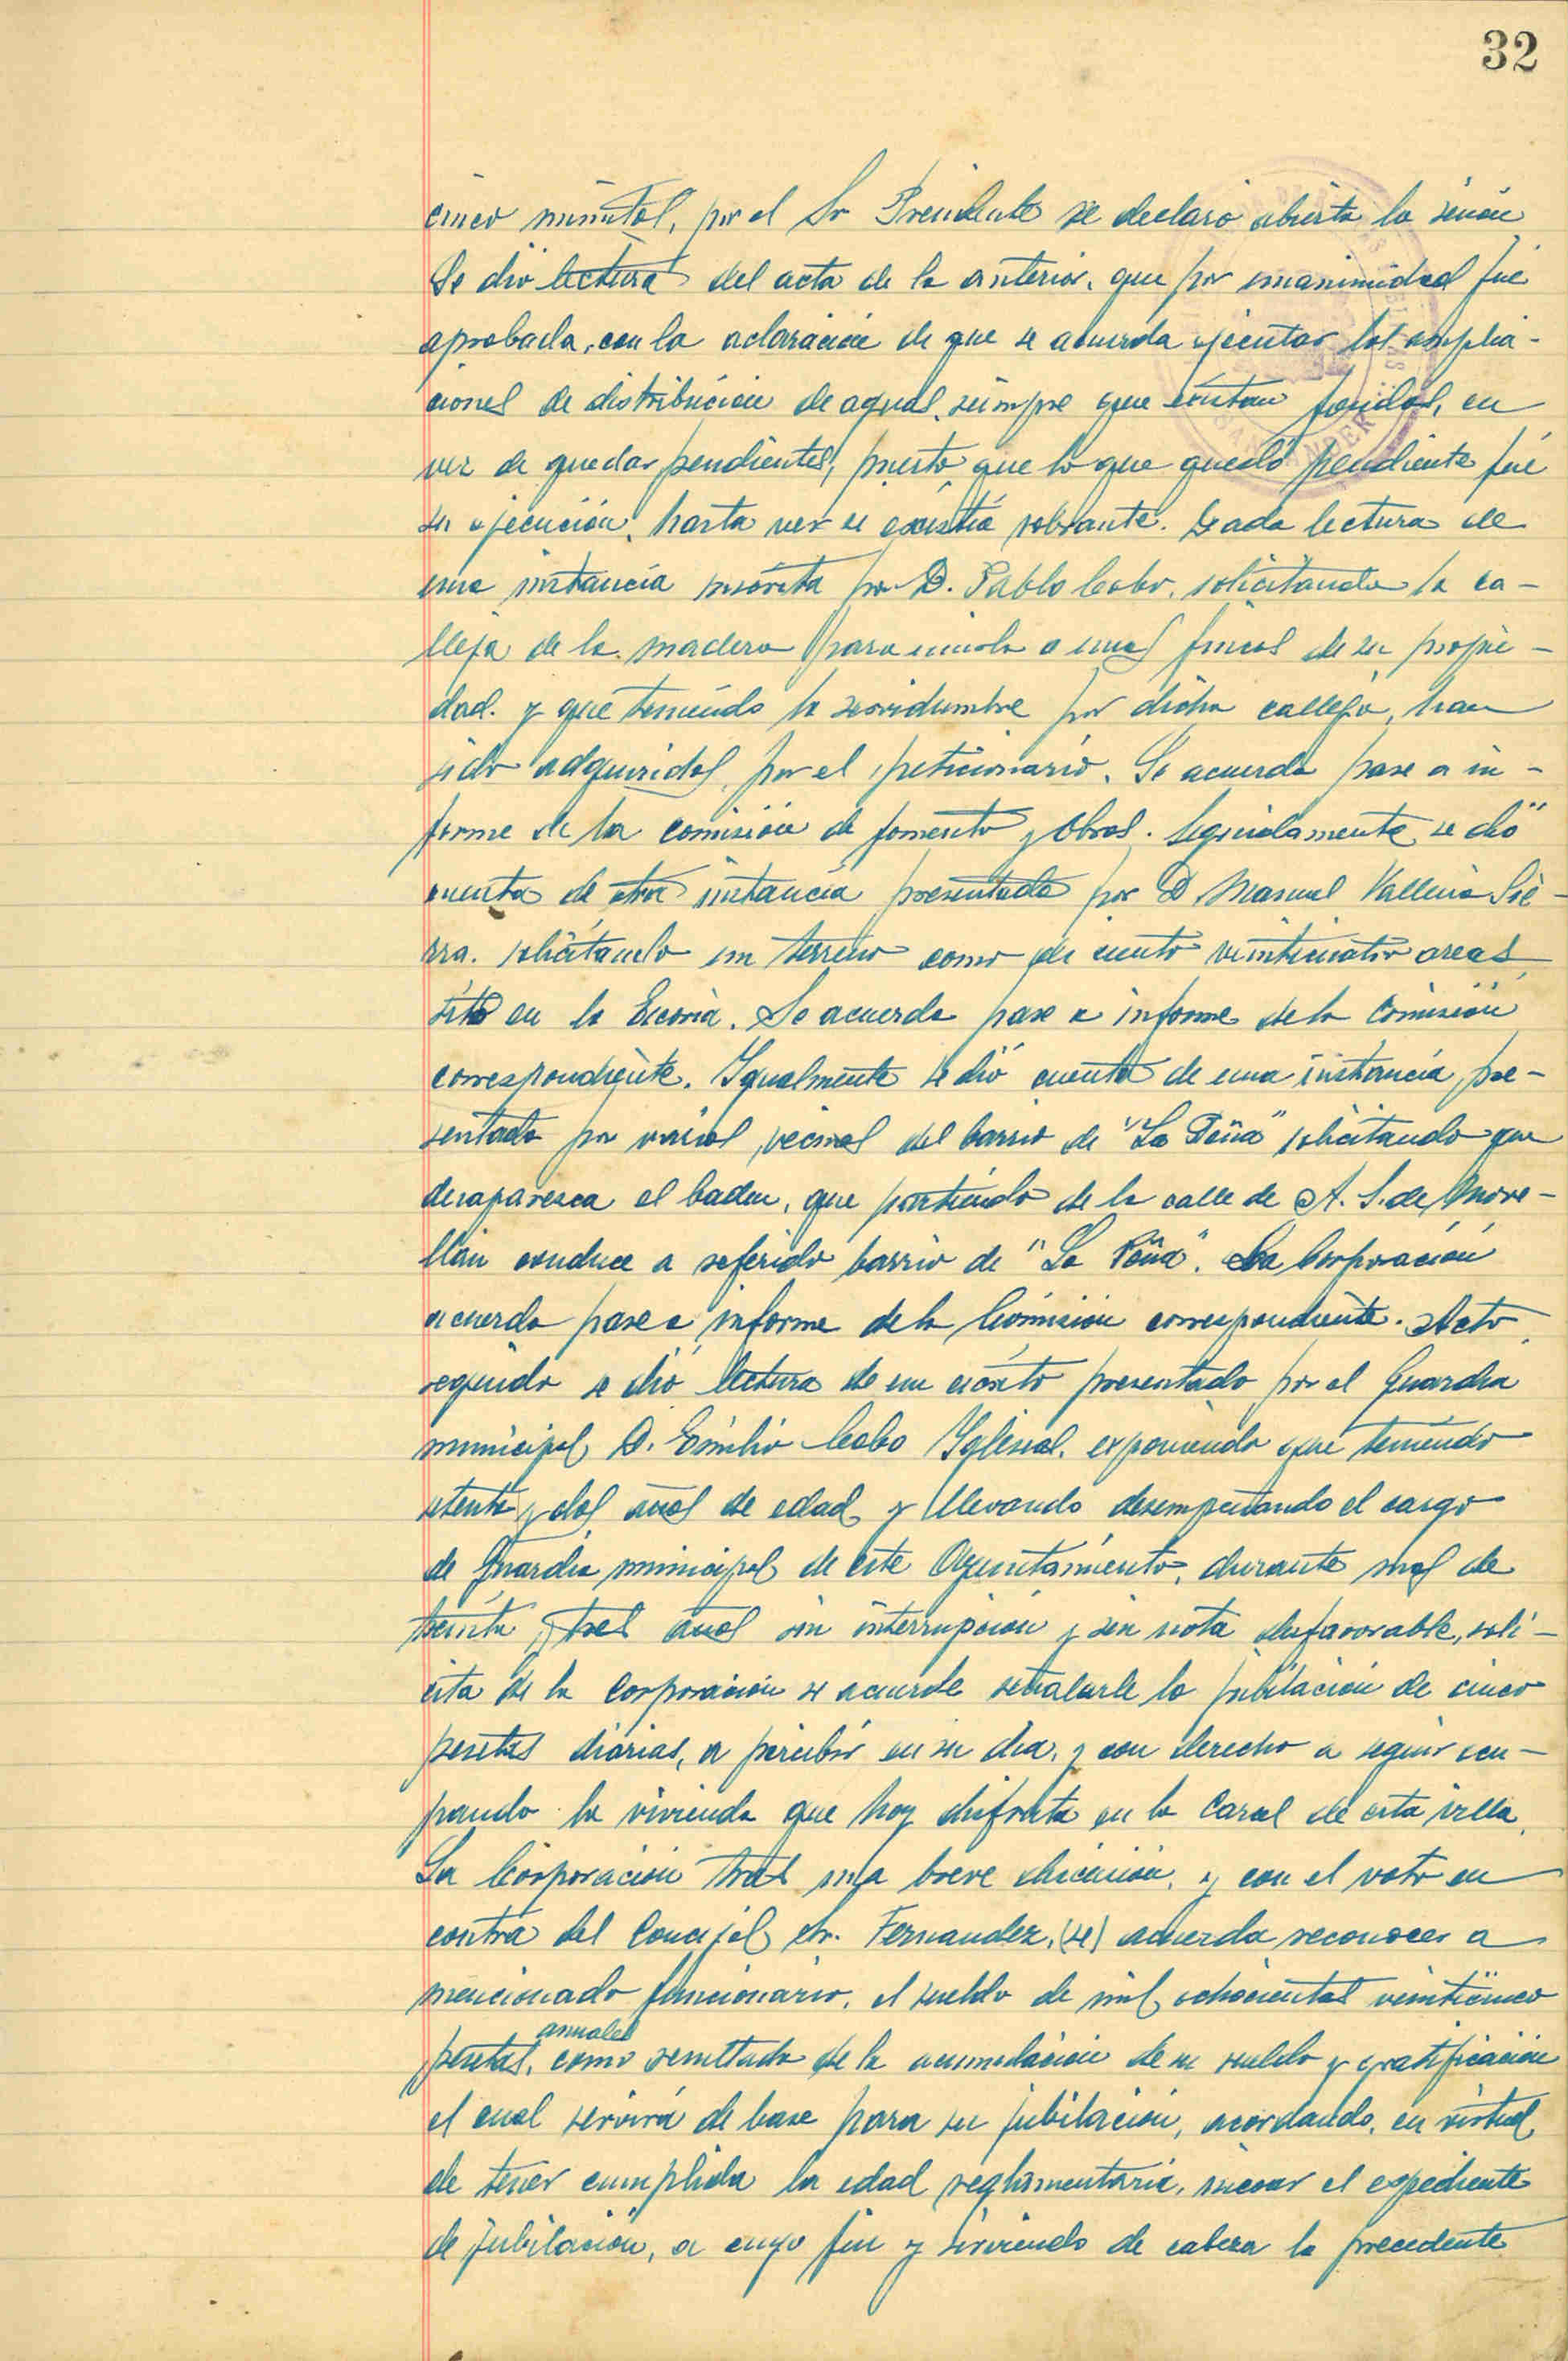 32
cinco minutos, por el Sr Presidente se declaró abierta la sesión
Se dió lectura del acta de la anterior, que por unanimidad fué
aprobada, con la aclaración de que se acuerda ejecutar las amplia-
ciones de distribución de aguas, siempre que existan fondos, en
vez de quedar pendientes, puesto que lo que quedó pendiente fué
su ejecución, hasta ver si existía sobrante. Dada lectura de
una instancia suscrita por D. Pablo Cobo, solicitando la ca-
lleja de la madera para unirla a unas fincas de su propie-
dad. y que teniendo la servidumbre por dicha calleja, han
sido adquiridas, por el peticionario. Se acuerda pase a in-
forme de la comisión de fomento y Obras. Seguidamente, se dió
cuenta de otra instancia presentada por D Manuel Vallecia Sie-
rra. solicitando un terreno como de ciento veinticuatro areas
sito en la . Se acuerda pase a informe de la Comisión
correspondiente. Igualmente se dió cuenta de una instancia, pre-
sentada por varios vecinos del barrio de "La Peña" solicitando que
desaparezca el baden, que partiendo de la calle de A. S. de More-
llán conduce a referido barrio de "La Peña". La Corporación
acuerda pase a informe de la Comisión correspondiente. Acto
seguido se dió lectura de un escrito presentado por el Guardia
municipal D. Emilio Cobo Yglesias. exponiendo que teniendo
setenta y dos años de edad y llevando desempeñando el cargo
de Guardia municipal de este Ayuntamiento, durante mas de
treinta y tres años sin interrupción y sin nota desfavorable, soli-
cita de la Corporación se acuerde señalarle la jubilación de cinco
pesetas diarias, a percibir en su día, y con derecho a seguir ocu-
pando la vivienda que hoy disfruta en la Carcel de esta villa.
La Corporación tras una breve discusión, y con el voto en
contra del Concejal Sr. Fernandez, (se) acuerda reconocer a
mencionado funcionario, el sueldo de mil ochocientas veinticinco
pesetas, anuales como resultado de la acumulación de su sueldo y gratificación
el cual servirá de base para su jubilación, acordando, en virtud
de tener cumplida la edad reglamentaria, incoar el expediente
de jubilación, a cuyo fin y sirviendo de cabeza la precedente
SANTANDER